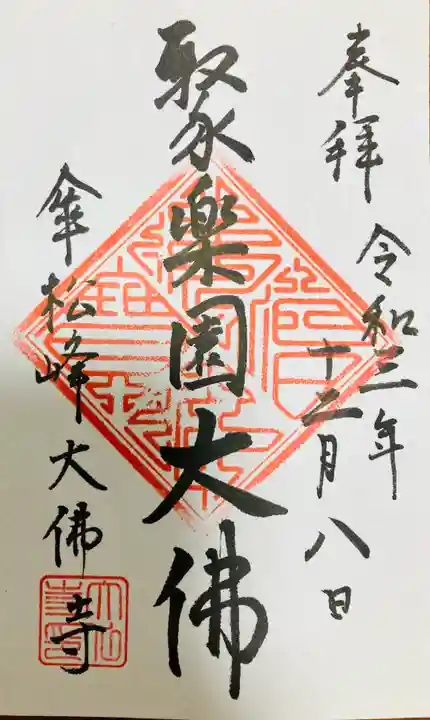 奉拝
令和三年
十二月八日
聚楽園大佛
傘松峰大佛寺